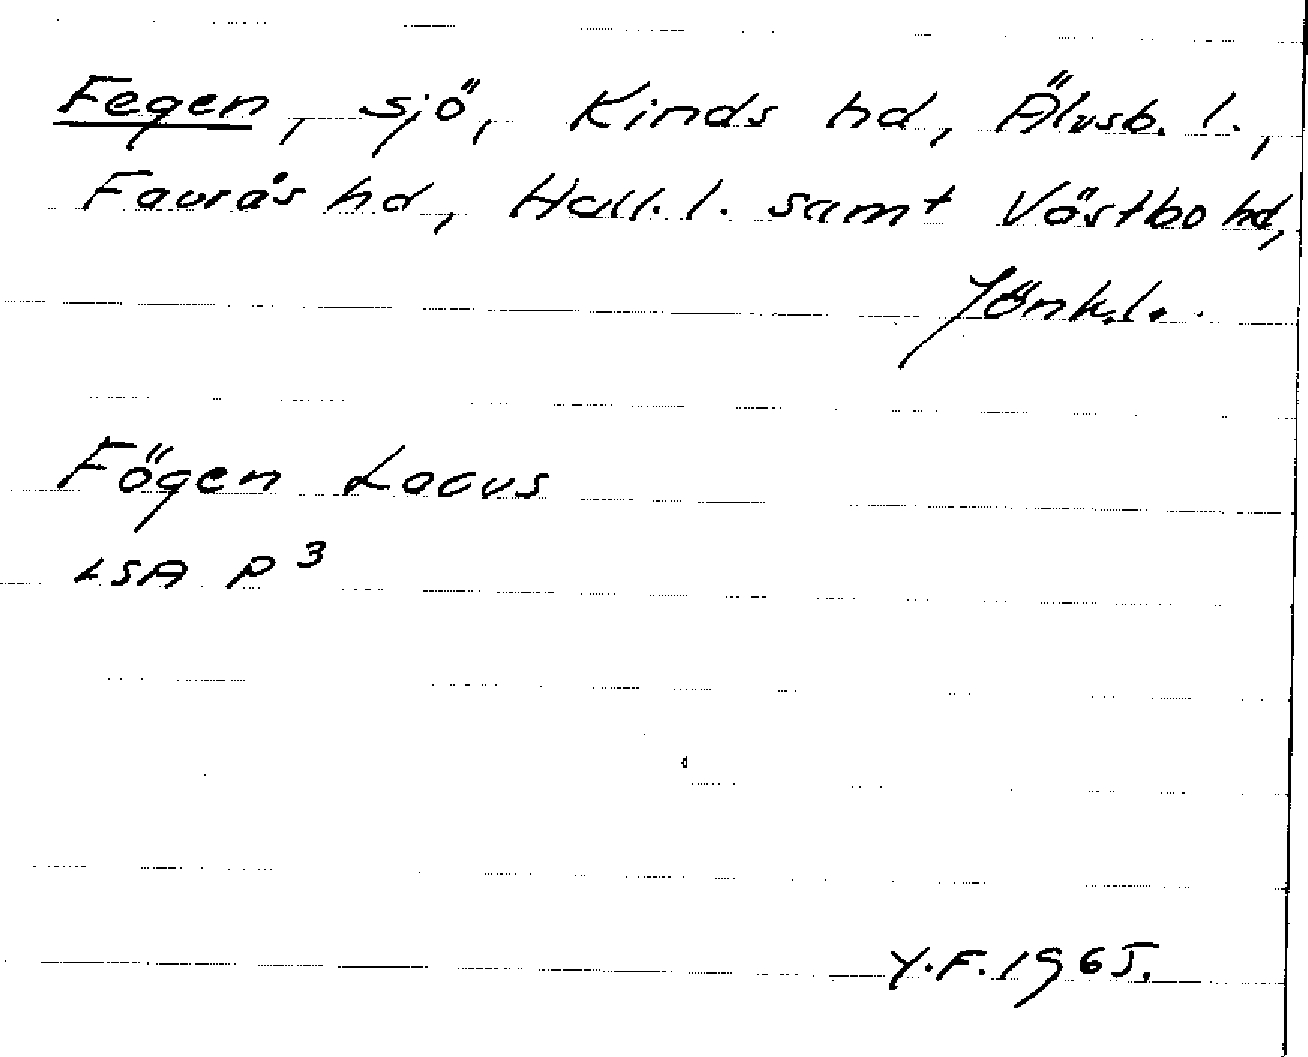 Fegen, sjö, Kinds hd, Älvsb. l.,
Faurås hd, Hall. l. samt Västbo hd,
Jönk. l.
Fögen Lacus
LSA P 3
Y.F. 1965.